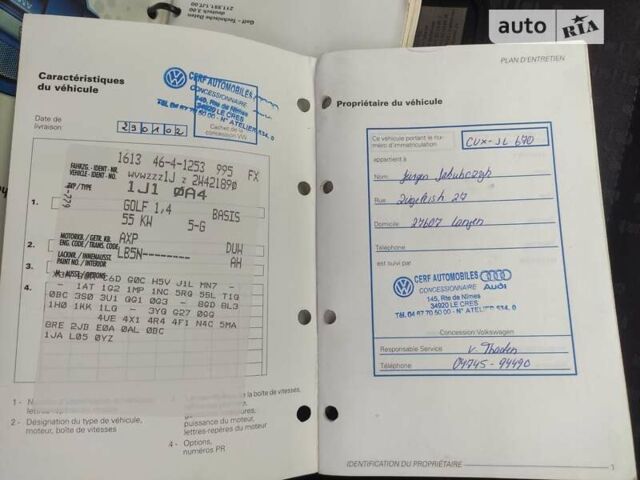 auto RIA
Golf - Technische Daten
deutsch 5.00
Caractéristiques
du véhicule
CERF AUTOMOBILES
CONCESSIONNAIRE
145, Rte de Nîmes
34920 LE CRES
Tél. 04 67 70 50 00 - N° ATELIER 534.0
Date de
livraison
290102
Cachet de la
concession VW
1613 46-4-1253 995 FX
FAHRZG.-IDENT-NR.
VEHICLE-IDENT-NO. WVWZZZ1J Z 2W421890
TYP/TYPE 1J1 0A4
4-779
1.
GOLF 1,4 BASIS
55 KW 5-G
MOTORKB./GETR.KB.
ENG.CODE/TRANS.CODE AXP DUW
2.
LACKNR./INNENAUSST.
PAINT NO./INTERIOR LB5N AH
3.
M.-AUSST./OPTIONS
C6D G0C H5V J1L MN7 -
4.
- 1AT 1G2 1MP 1NC 5RG 55L T1G
0BC 3S0 3U1 GG1 0G3 - 8GD BL3
1H0 1KK 1LG - 3YG G27 0GG
4UE 4X1 4R4 4F1 N4C 5MA
8RE 2JB E0A 0AL 0BC
1JA L05 0YZ
1 -
2 - Désignation du type de véhicule,
moteur, boîte de vitesses
la boîte de vitesses,
lettres-repères du moteur
4 - Options,
numéros PR
PLAN D'ENTRETIEN
Propriétaire du véhicule
Ce véhicule portant le nu-
méro d'immatriculation
CUX-JL 670
appartient à
Nom Jürgen Jakubczyk
Rue 27
Domicile 27607 Langen
Téléphone
est suivi par
CERF AUTOMOBILES Audi
CONCESSIONNAIRE
145, Rte de Nîmes
34920 LE CRES
Tél. 04 67 70 50 00 - N° ATELIER 534.0
Concession Volkswagen
Responsable Service v. Thaden
Téléphone 04745-94490
IDENTIFICATION DU PROPRIÉTAIRE